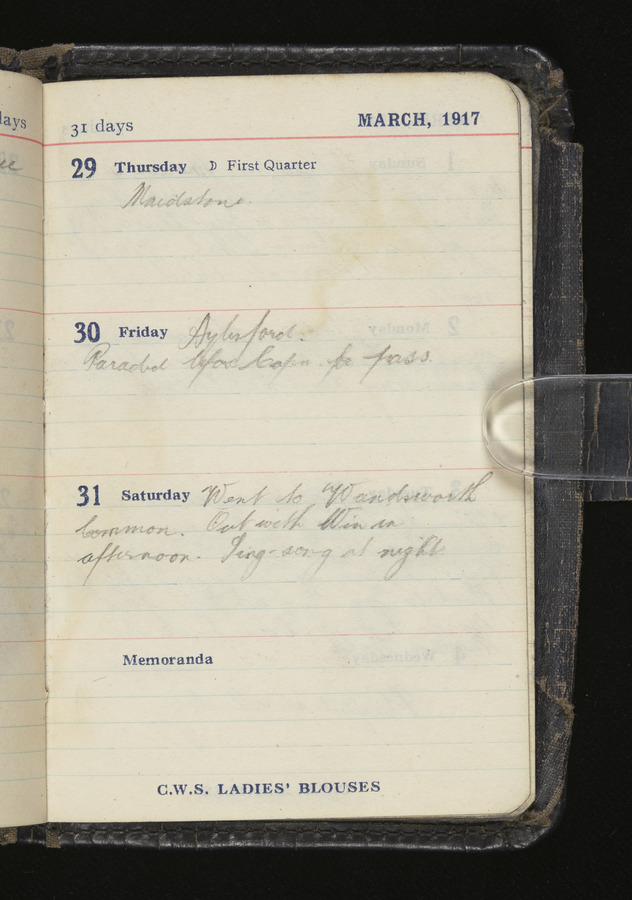 31 days
MARCH, 1917
29 Thursday First Quarter
Maidstone.
30 Friday Aylesford.
Paraded for pass.
31 Saturday Went to Wandsworth
Common. Out with Win in
afternoon. Sing-song at night
Memoranda
C.W.S. LADIES' BLOUSES